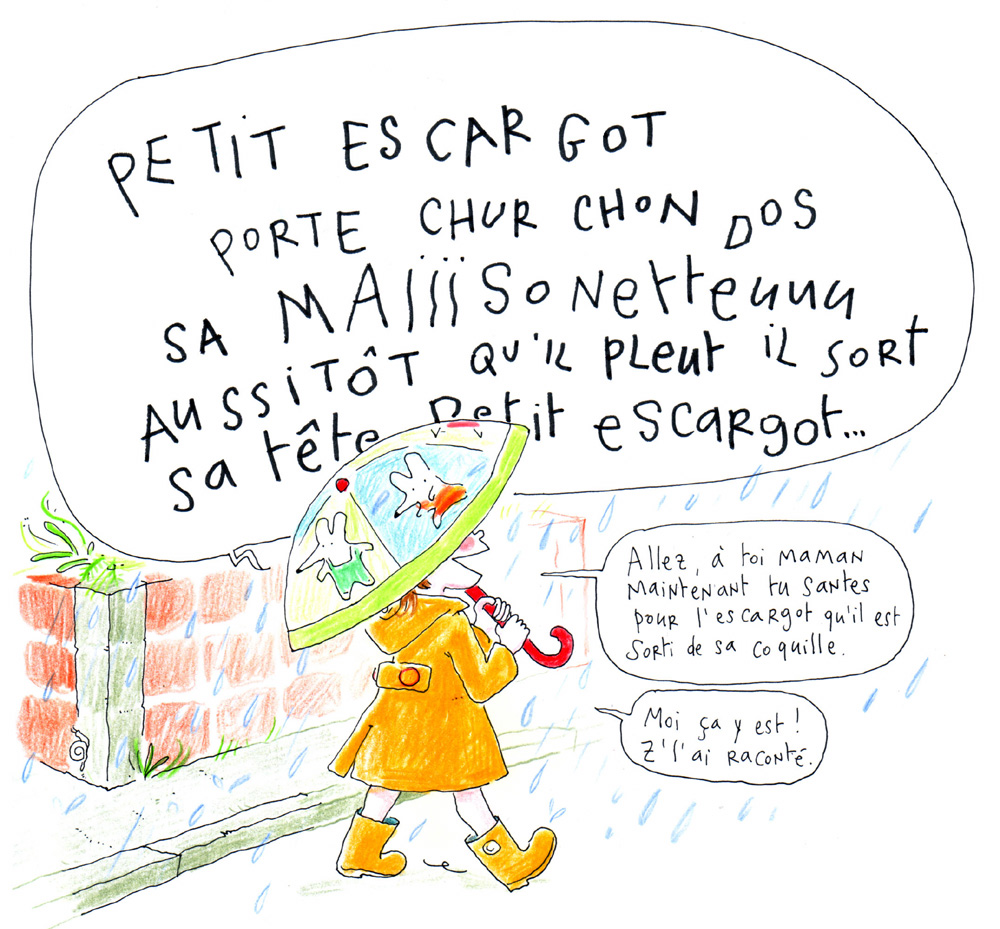 PETiT ESCARGOT
PORTE CHUR CHON DOS
SA MAïïïSoNetteuuu
AUSSiTÔT QU'iL PLEUt iL SORt
Sa tête Petit eSCaRgot...
Allez, à toi MaMaN
MaiNtENaNt tu SaNtes
pouR l'escaRgot qu'il est
Sorti de sa coquille.
Moi ça y est !
Z'l'ai RacoNté.